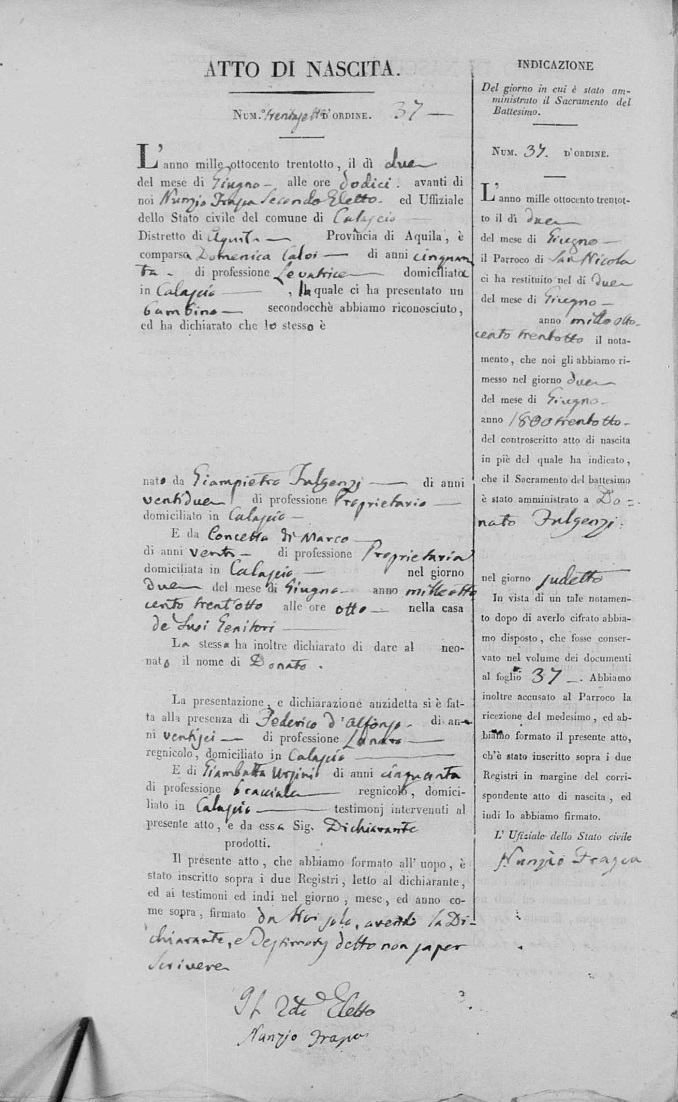 ATTO DI NASCITA.
NUM.º trentasette D'ORDINE. 37 —
L'anno mille ottocento trentotto, il dì due
del mese di Giugno — alle ore dodici. avanti di
noi Nunzio Frapa Secondo Eletto — ed Uffiziale
dello Stato civile del comune di Calascio —
Distretto di — Provincia di Aquila, è
comparsa Domenica — di anni cinquan
ta — di professione Levatrice — domiciliata
in Calascio — , la quale ci ha presentato un
bambino — secondocchè abbiamo riconosciuto,
ed ha dichiarato che lo stesso è
nato da Giampietro Fulgenzj — di anni
ventidue di professione Proprietario —
domiciliato in Calascio —
E da Concetta di Marco —
di anni venti — di professione Proprietaria
domiciliata in Calascio — nel giorno
due del mese di Giugno — anno milleotto
cento trent'otto alle ore otto — nella casa
de Suoi Genitori —
La stessa ha inoltre dichiarato di dare al neo-
nato il nome di Donato.
La presentazione, e dichiarazione anzidetta si è fat-
ta alla presenza di Federico d'Alfonso — di an-
ni ventisei — di professione —
regnicolo, domiciliato in Calascio —
E di Giambatta Ursinio di anni cinquanta
di professione bracciale — regnicolo, domici-
liato in Calascio — testimonj intervenuti al
presente atto, e da essa Sig. Dichiarante
prodotti.
Il presente atto, che abbiamo formato all' uopo, è
stato inscritto sopra i due Registri, letto al dichiarante,
ed ai testimoni ed indi nel giorno, mese, ed anno co-
me sopra, firmato da Noi solo, avendo la Di-
chiarante, e Testimonj detto non saper
scrivere
2do Eletto
Nunzio Frapa
INDICAZIONE
Del giorno in cui è stato am-
ministrato il Sacramento del
Battesimo.
NUM. 37. D'ORDINE.
L'anno mille ottocento trentot-
to il dì due
del mese di Giugno —
il Parroco di San Nicola
ci ha restituito nel dì due
del mese di Giugno —
anno mille otto-
cento trentotto il nota-
mento, che noi gli abbiamo ri-
messo nel giorno due
del mese di Giugno —
anno 1800trentotto —
del controscritto atto di nascita
in piè del quale ha indicato,
che il Sacramento del battesimo
è stato amministrato a Do-
nato Fulgenzj.
nel giorno sudetto
In vista di un tale notamen-
to dopo di averlo cifrato abbia-
mo disposto, che fosse conser-
vato nel volume dei documenti
al foglio 37 —. Abbiamo
inoltre accusato al Parroco la
ricezione del medesimo, ed ab-
biamo formato il presente atto,
ch'è stato inscritto sopra i due
Registri in margine del corri-
spondente atto di nascita, ed
indi lo abbiamo firmato.
L' Ufiziale dello Stato civile
Nunzio Frapa